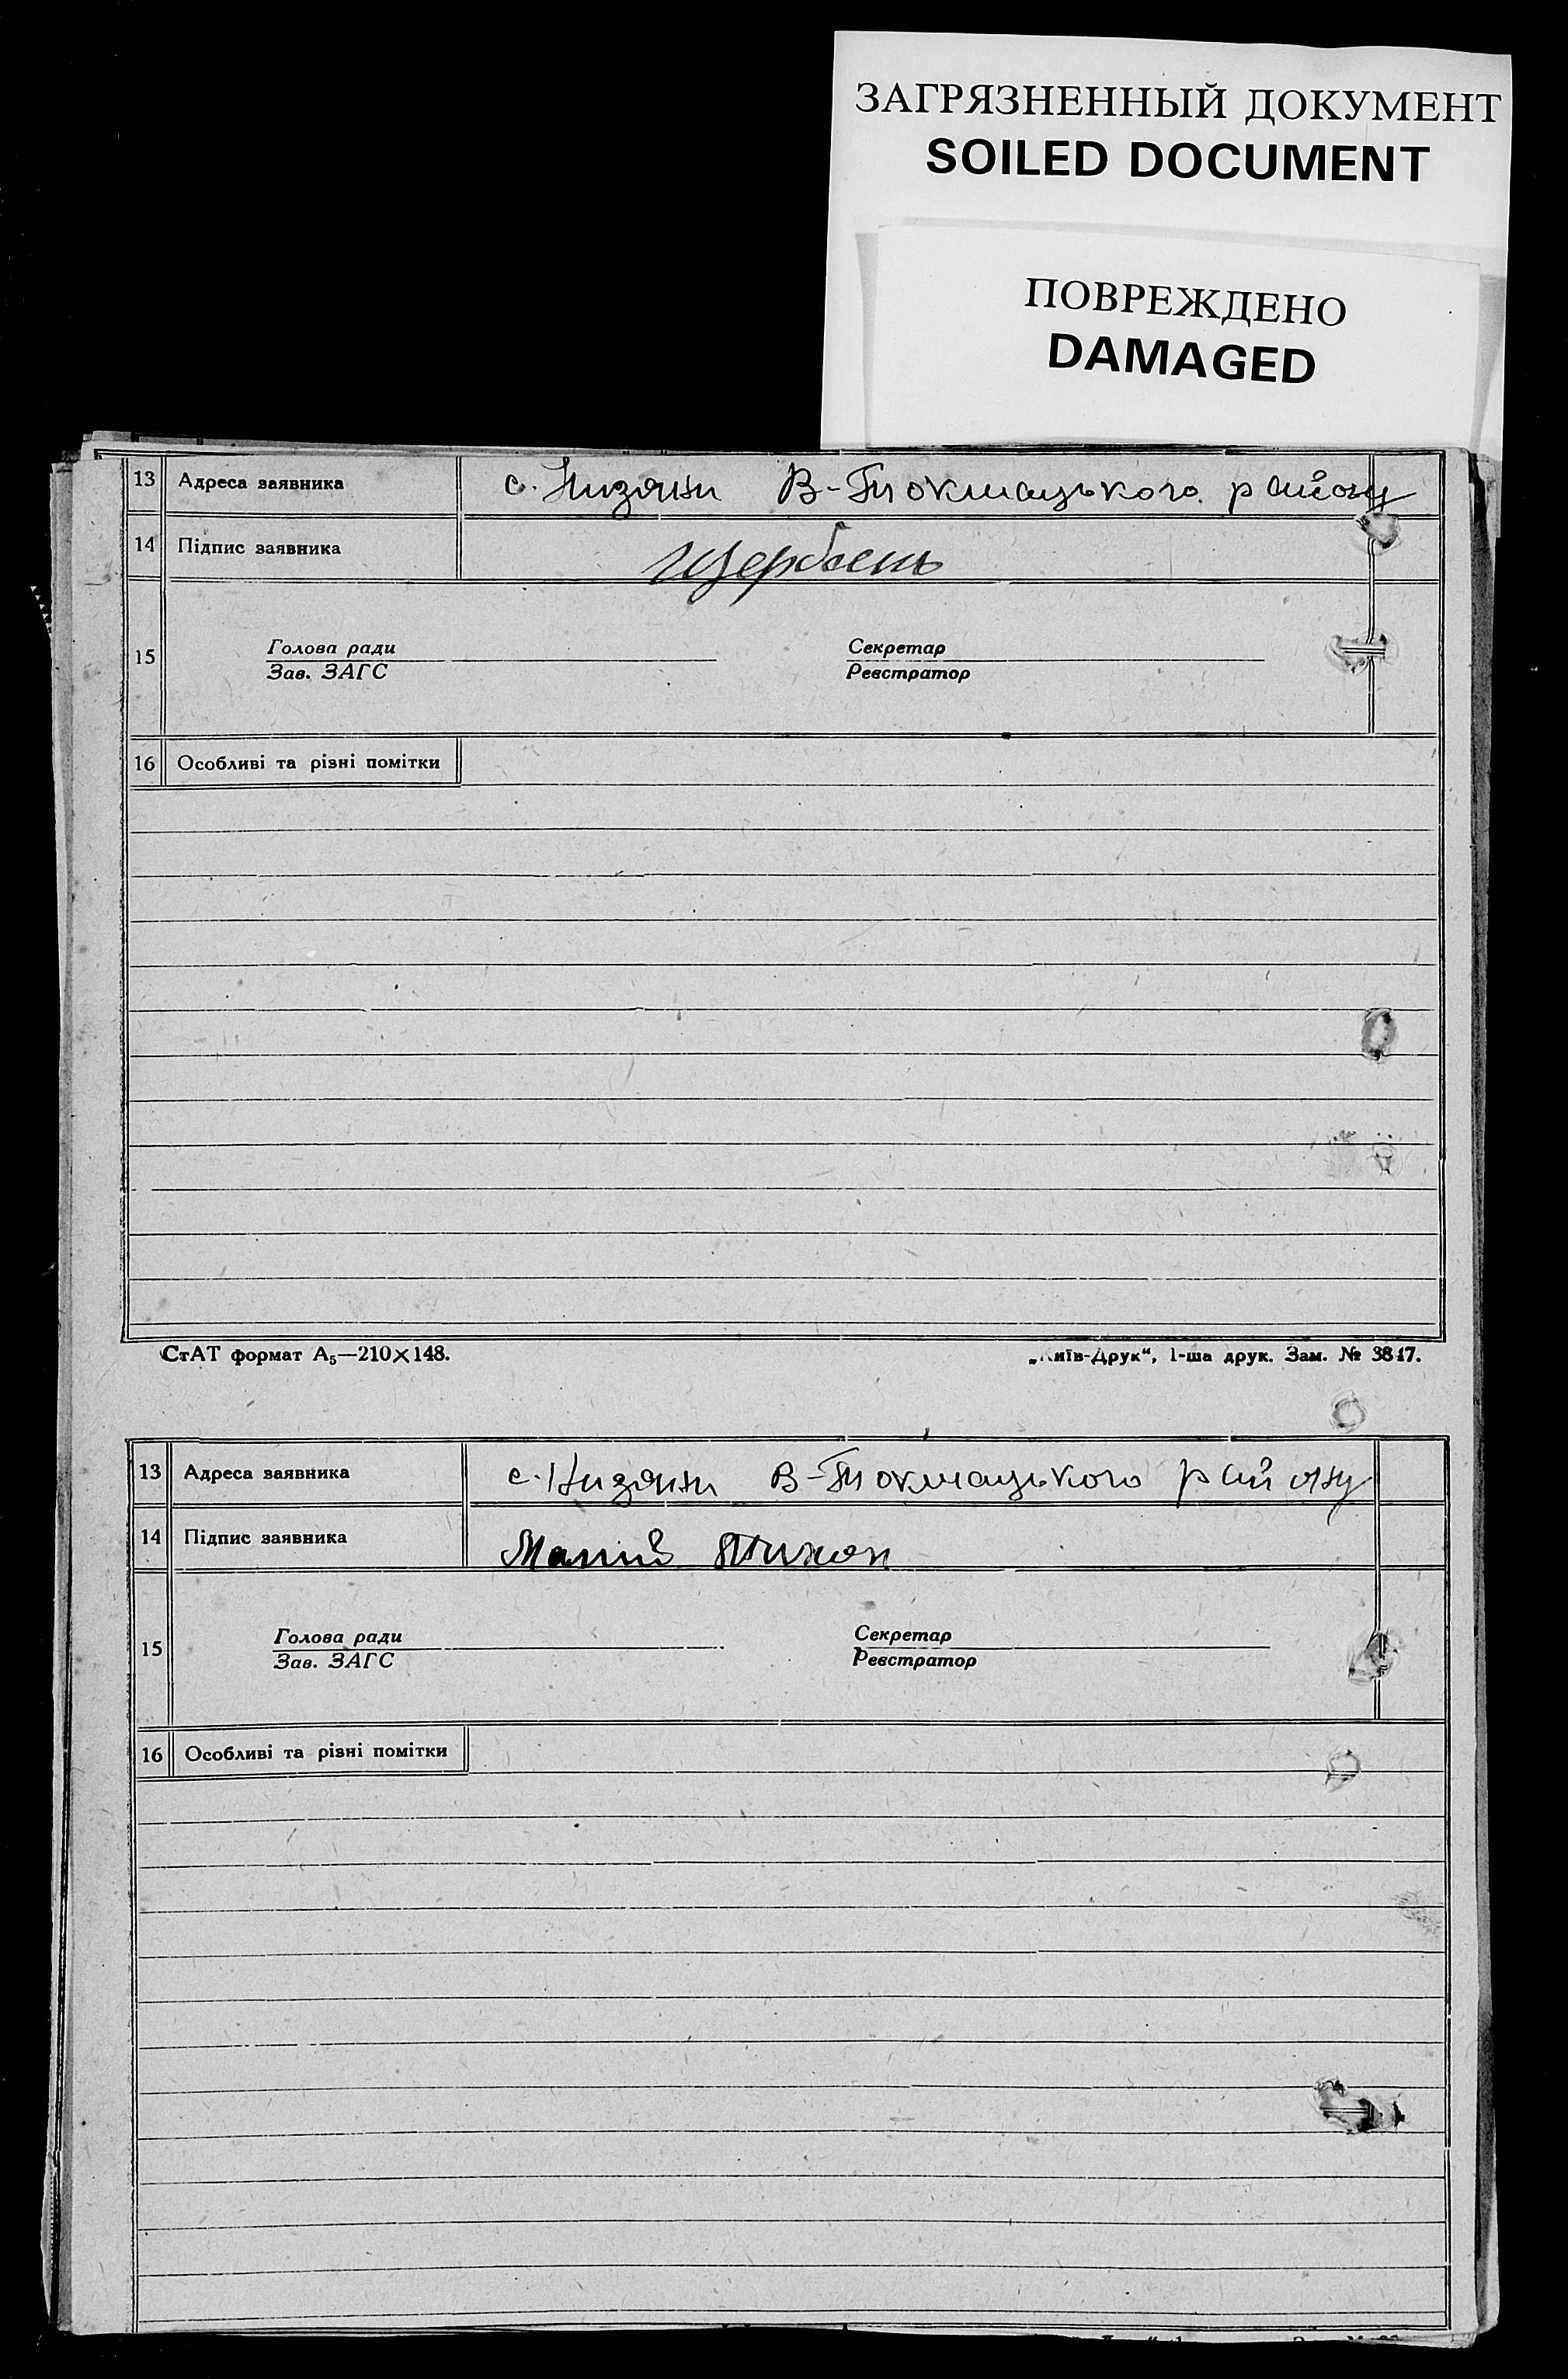 ЗАГРЯЗНЕННЫЙ ДОКУМЕНТ
SOILED DOCUMENT
ПОВРЕЖДЕНО
DAMAGED
13 Адреса заявника с. Низяни В-Токмацького району
14 Підпис заявника Щербень
15 Голова ради Секретар
Зав. ЗАГС Реєстратор
16 Особливі та різні помітки
СтАТ формат А₅—210×148. „Київ-Друк“, 1-ша друк. Зам. № 3847.
13 Адреса заявника с. Низяни В-Токмацького району
14 Підпис заявника Малий Тихон
15 Голова ради Секретар
Зав. ЗАГС Реєстратор
16 Особливі та різні помітки